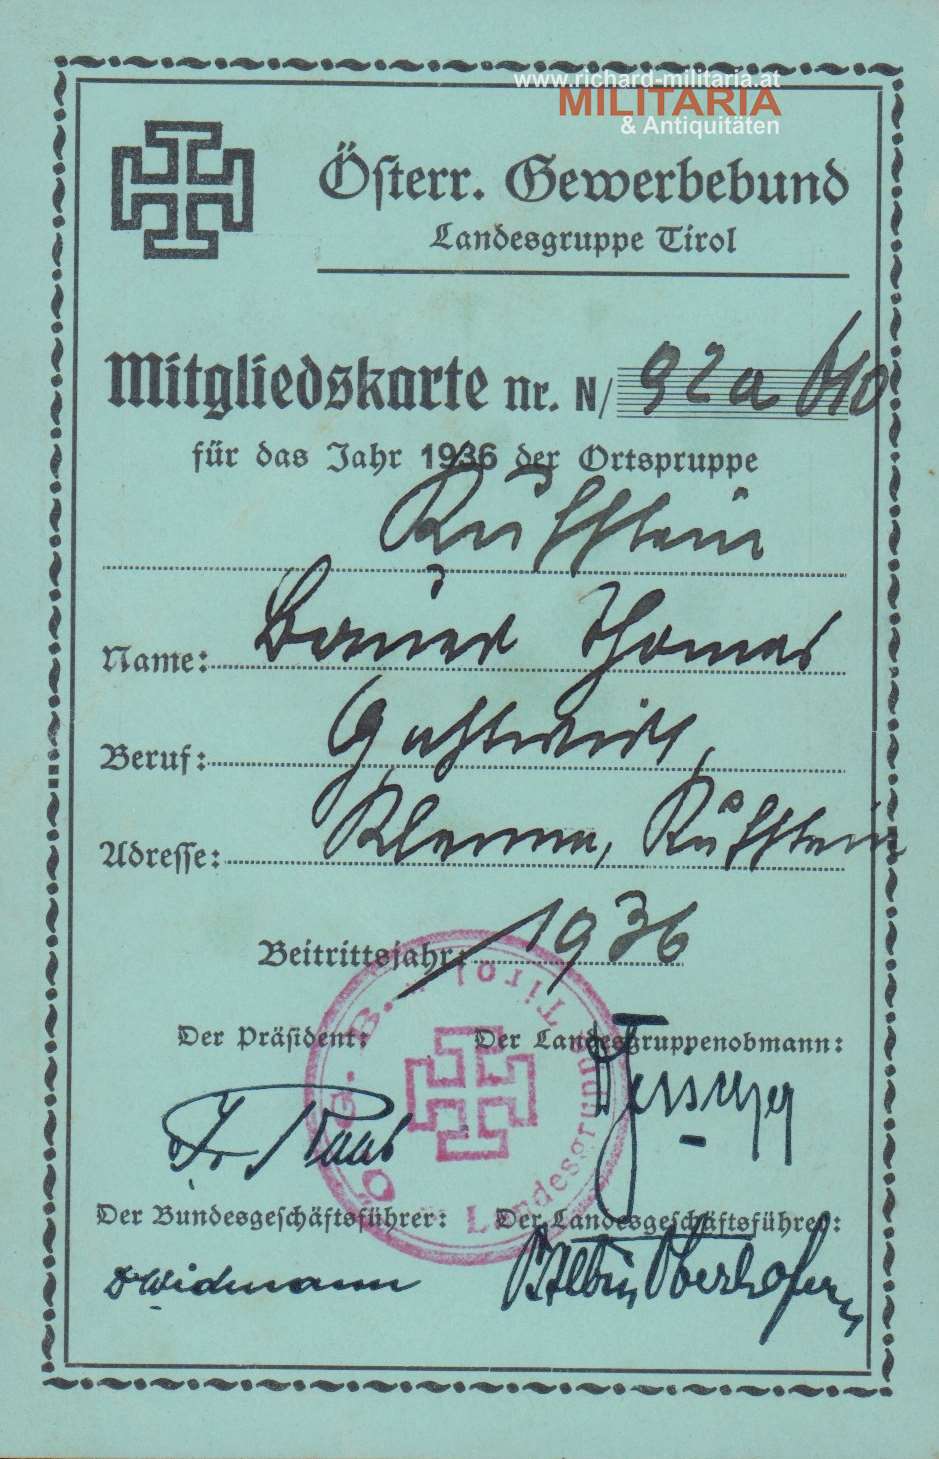 www.richard-militaria.at
MILITARIA
& Antiquitäten
Österr. Gewerbebund
Landesgruppe Tirol
Mitgliedskarte Nr. N/ 92a
für das Jahr 1936 der Ortspruppe
Kufstein
Name: Bauer Thomas
Beruf: Gastwirt,
Adresse: Klemma, Kufstein
Beitrittsjahr: 1936
Ö. G. B. Tirol Landesgruppe
Der Präsident: Der Landesgruppenobmann:
Raab
Der Bundesgeschäftsführer: Der Landesgeschäftsführer:
Dr Widmann Albin Oberhofer